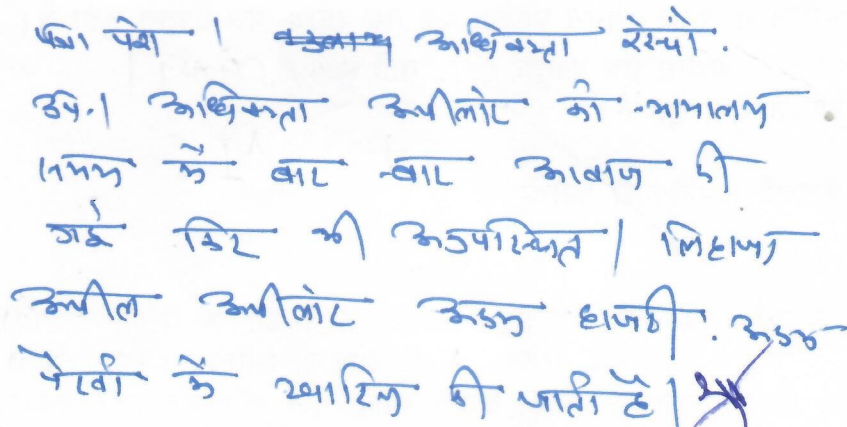 पत्रा पेश । अधिवक्ता रेस्पो.
उप.। अधिवक्ता अपीलांट को न्यायालय
समय में बार-बार आवाज दी
गई फिर भी अनुपस्थित। लिहाजा
अपील अपीलांट अदम हाजरी. अदम
पैरवी में खारिज की जाती है।